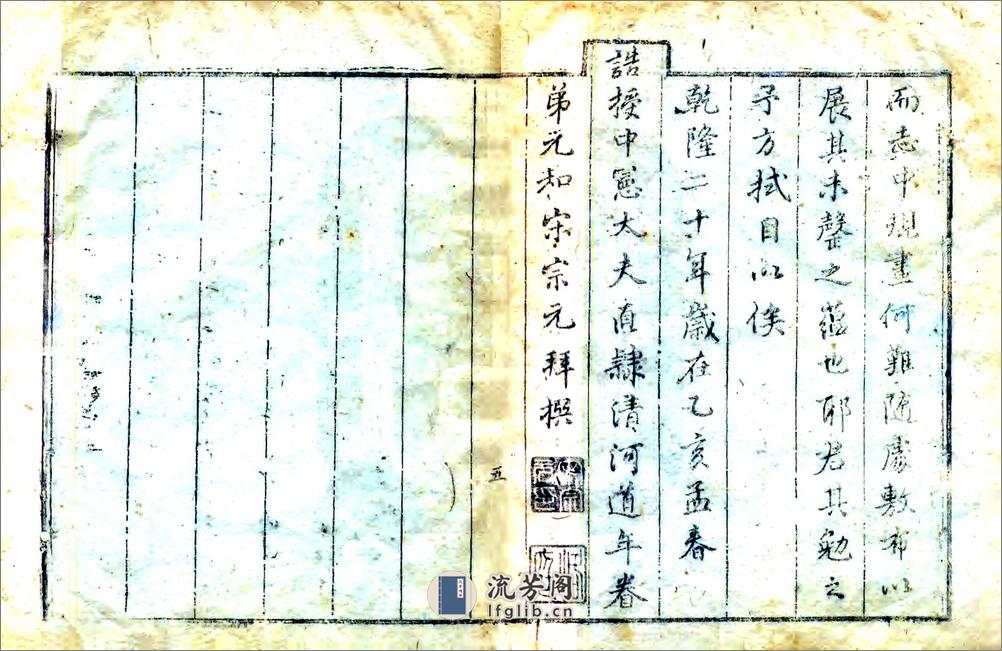 而志中規畫何難隨處敷布以
展其未罄之蘊也耶君其勉之
予方拭目以俟
乾隆二十年歲在乙亥孟春
誥授中憲大夫直隸清河道年眷
弟元和宋宗元拜撰
五
流芳阁
lfglib.cn